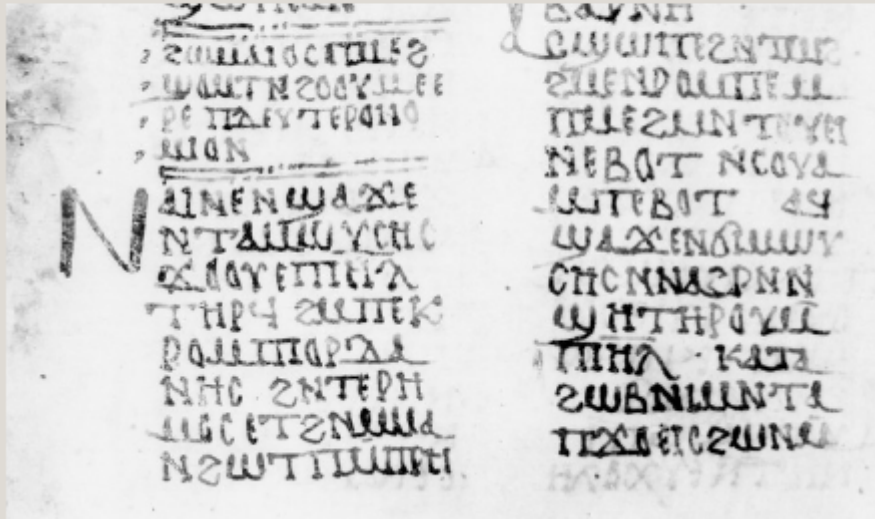 ϩⲱⲙⲁⲓⲟⲥⲡⲙⲉϩ
ϣⲟⲙⲧⲛϩⲟⲟⲩⲙⲉⲉ
ⲣⲉ ⲡⲇⲉⲩⲧⲉⲣⲟⲛⲟ
ⲙⲓⲟⲛ
ⲛⲁⲓⲛⲉⲛϣⲁϫⲉ
ⲛⲧⲁⲙⲱⲩⲥⲏⲥ
ϫⲟⲟⲩⲉⲡⲓⲏⲗ
ⲧⲏⲣϥ ϩⲙⲡⲉⲕ
ⲣⲟⲙⲡⲓⲟⲣⲇⲁ
ⲛⲏⲥ ϩⲛⲧⲉⲣⲏ
ⲙⲟⲥⲉⲧϩⲛⲙⲙⲁ
ⲛϩⲱⲧⲡⲙⲡⲉⲙ
ⲃⲁⲣⲛⲏ
ⲁⲥϣⲱⲡⲉϩⲛⲧⲙⲉϩ
ϩⲙⲉⲛⲣⲟⲙⲡⲉⲙ
ⲡⲙⲉϩⲙⲛⲧⲟⲩⲉⲓ
ⲛⲉⲃⲟⲧ ⲛⲥⲟⲩⲁ
ⲙⲡⲉⲃⲟⲧ ⲁϥ
ϣⲁϫⲉⲛϭⲓⲙⲱⲩ
ⲥⲏⲥⲛⲛⲁϩⲣⲛⲛ
ϣⲏⲧⲏⲣⲟⲩⲙ
ⲡⲓⲏⲗ · ⲕⲁⲧⲁ
ϩⲱⲃⲛⲓⲙⲛⲧⲁ
ⲡϫⲟⲉⲓⲥϩⲱⲛⲙ